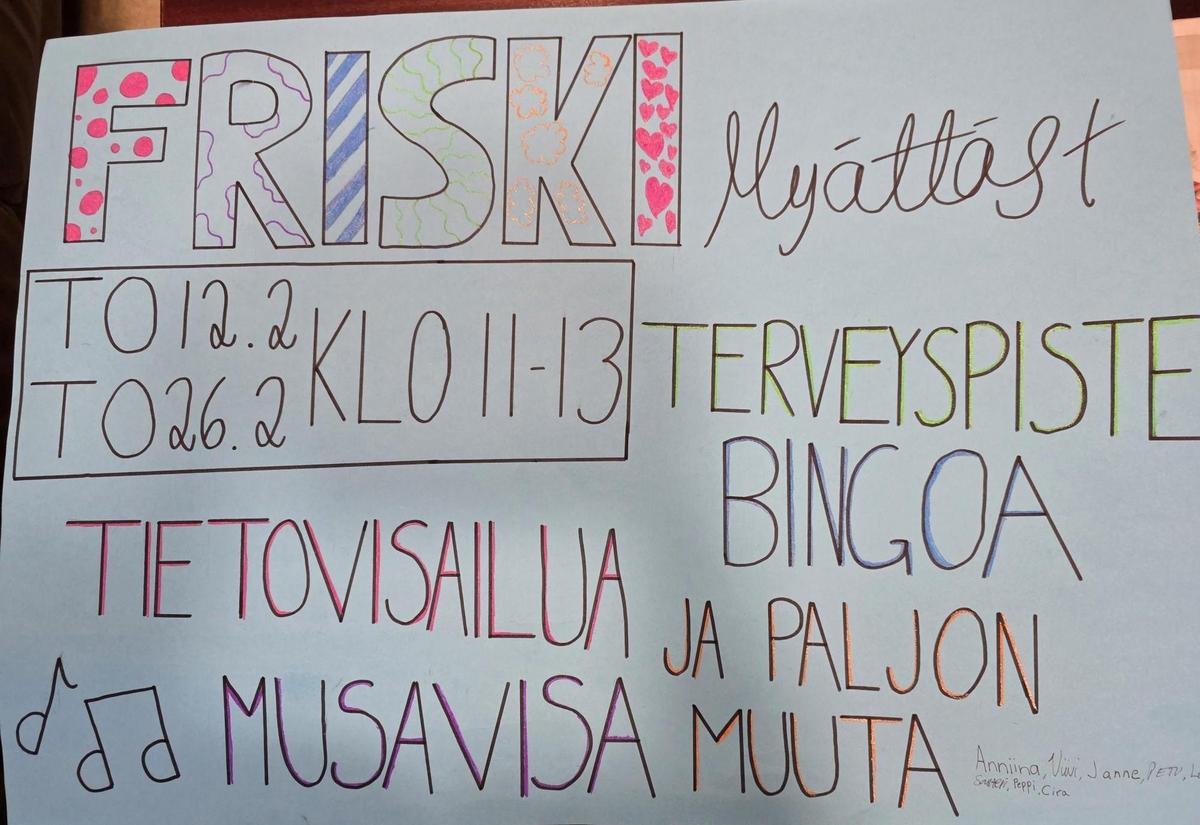 FRISKI Myáttást
TO 12.2
TO 26.2
KLO 11-13
TERVEYSPISTE
BINGOA
TIETOVISAILUA
JA PALJON
MUUTA
MUSAVISA
Anniina, Viivi, Janne, PETU,
Peppi, Cira